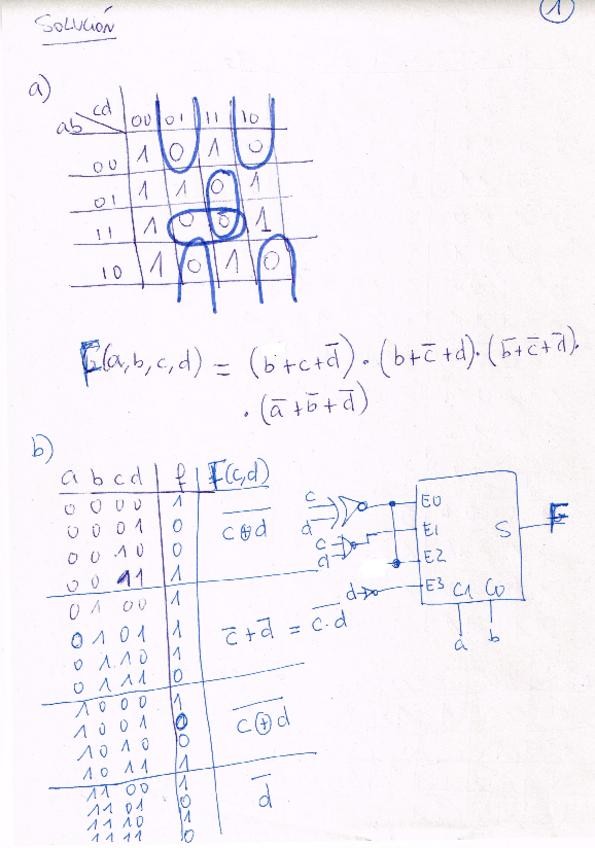 1
SOLUCIÓN
a)
cd
ab 00 01 11 10
00 1 0 1 0
01 1 1 0 1
11 1 0 0 1
10 1 0 1 0
F(a,b,c,d) = (b+c+d̅)·(b+c̅+d)·(b̅+c̅+d̅)·
·(a̅+b̅+d̅)
b)
a b c d f F(c,d)
0 0 0 0 1
0 0 0 1 0
0 0 1 0 0
0 0 1 1 1
c̅ ̅⊕̅ ̅d̅
0 1 0 0 1
0 1 0 1 1
0 1 1 0 1
0 1 1 1 0
c̅+d̅ = c̅·̅d̅
1 0 0 0 1
1 0 0 1 0
1 0 1 0 0
1 0 1 1 1
c̅ ̅⊕̅ ̅d̅
1 1 0 0 1
1 1 0 1 0
1 1 1 0 1
1 1 1 1 0
d̅
c
d
c
d
d
E0
E1
E2
E3
C1 C0
S
F
a b